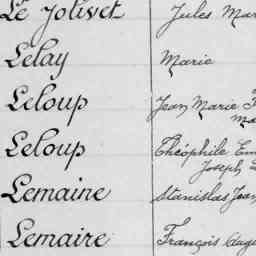 Le Jolivet Jules Mar
Lelay Marie
Leloup Jean Marie
Leloup Théophile Em
Joseph
Lemaine Stanislas Jean
Lemaire François Augu